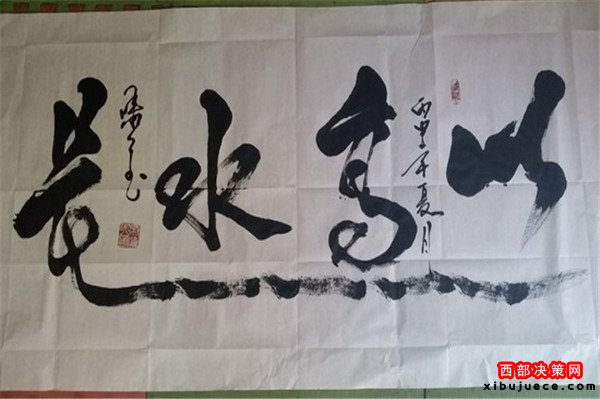 山高水長
丙申年夏月
西部决策网
xibujuece.com